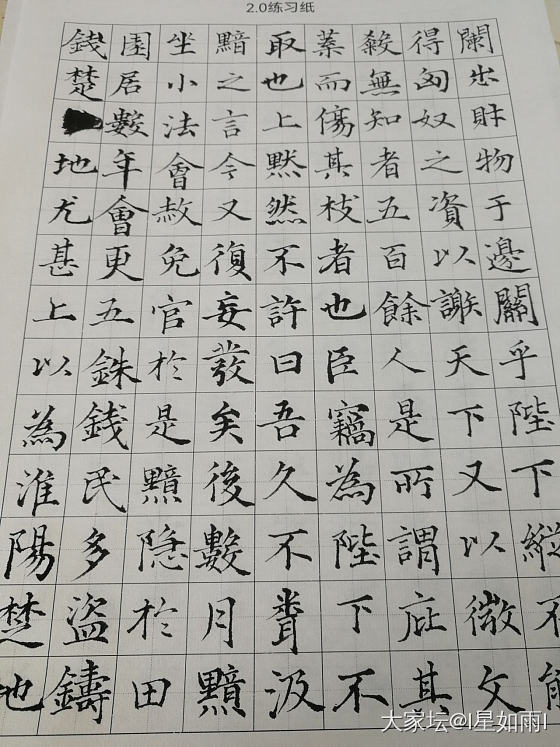 2.0练习纸
闌出財物于邊關乎陛下縱不能
得匈奴之資以謝天下又以微文
殺無知者五百餘人是所謂庇其
葉而傷其枝者也臣竊為陛下不
取也上默然不許曰吾久不聞汲
黯之言今又復妄發矣後數月黯
坐小法會赦免官於是黯隐於田
園居數年會更五銖錢民多盜鑄
錢楚地尤甚上以為淮陽楚地
大家坛@I星如雨I